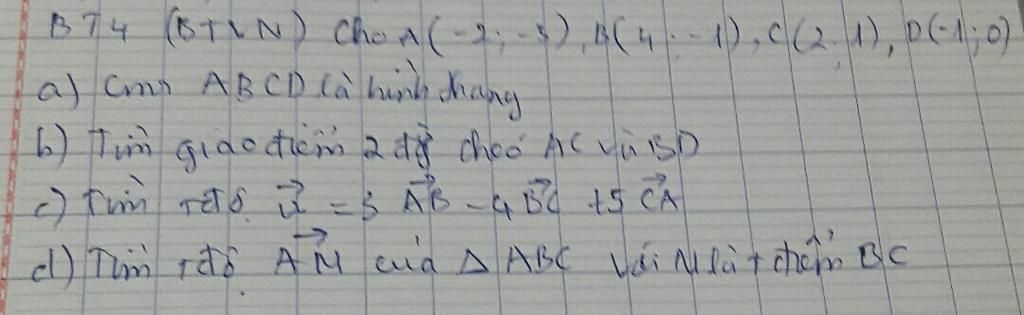 BT4 (BTVN) Cho A(-2; -3), B(4; -1), C(2; 1), D(-1; 0)
a) Cmr ABCD là hình thang
b) Tìm giao điểm 2 đg chéo AC và BD
c) Tìm tđộ u⃗ = 3 AB⃗ - 4 BC⃗ + 5 CA⃗
d) Tìm tđộ AM⃗ của Δ ABC với M là t điểm BC